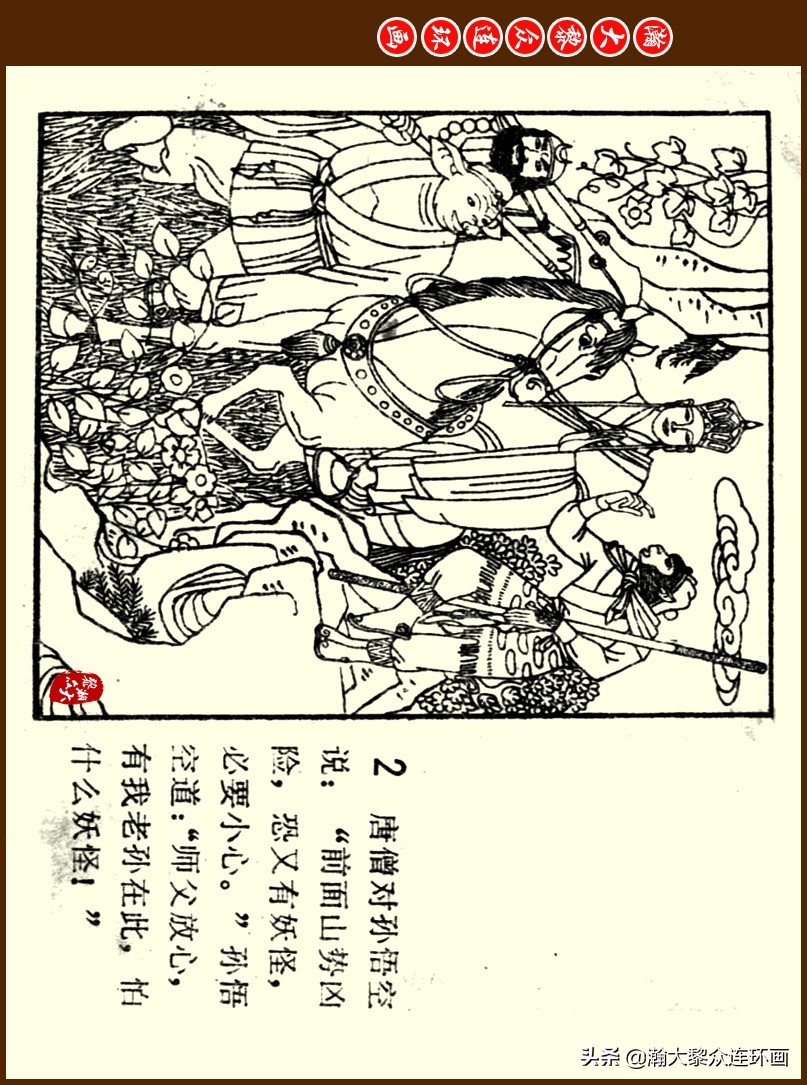 瀚大黎众连环画
2 唐僧对孙悟空
说：“前面山势凶
险，恐又有妖怪，
必要小心。”孙悟
空道：“师父放心，
有我老孙在此，怕
什么妖怪！”
头条 @瀚大黎众连环画